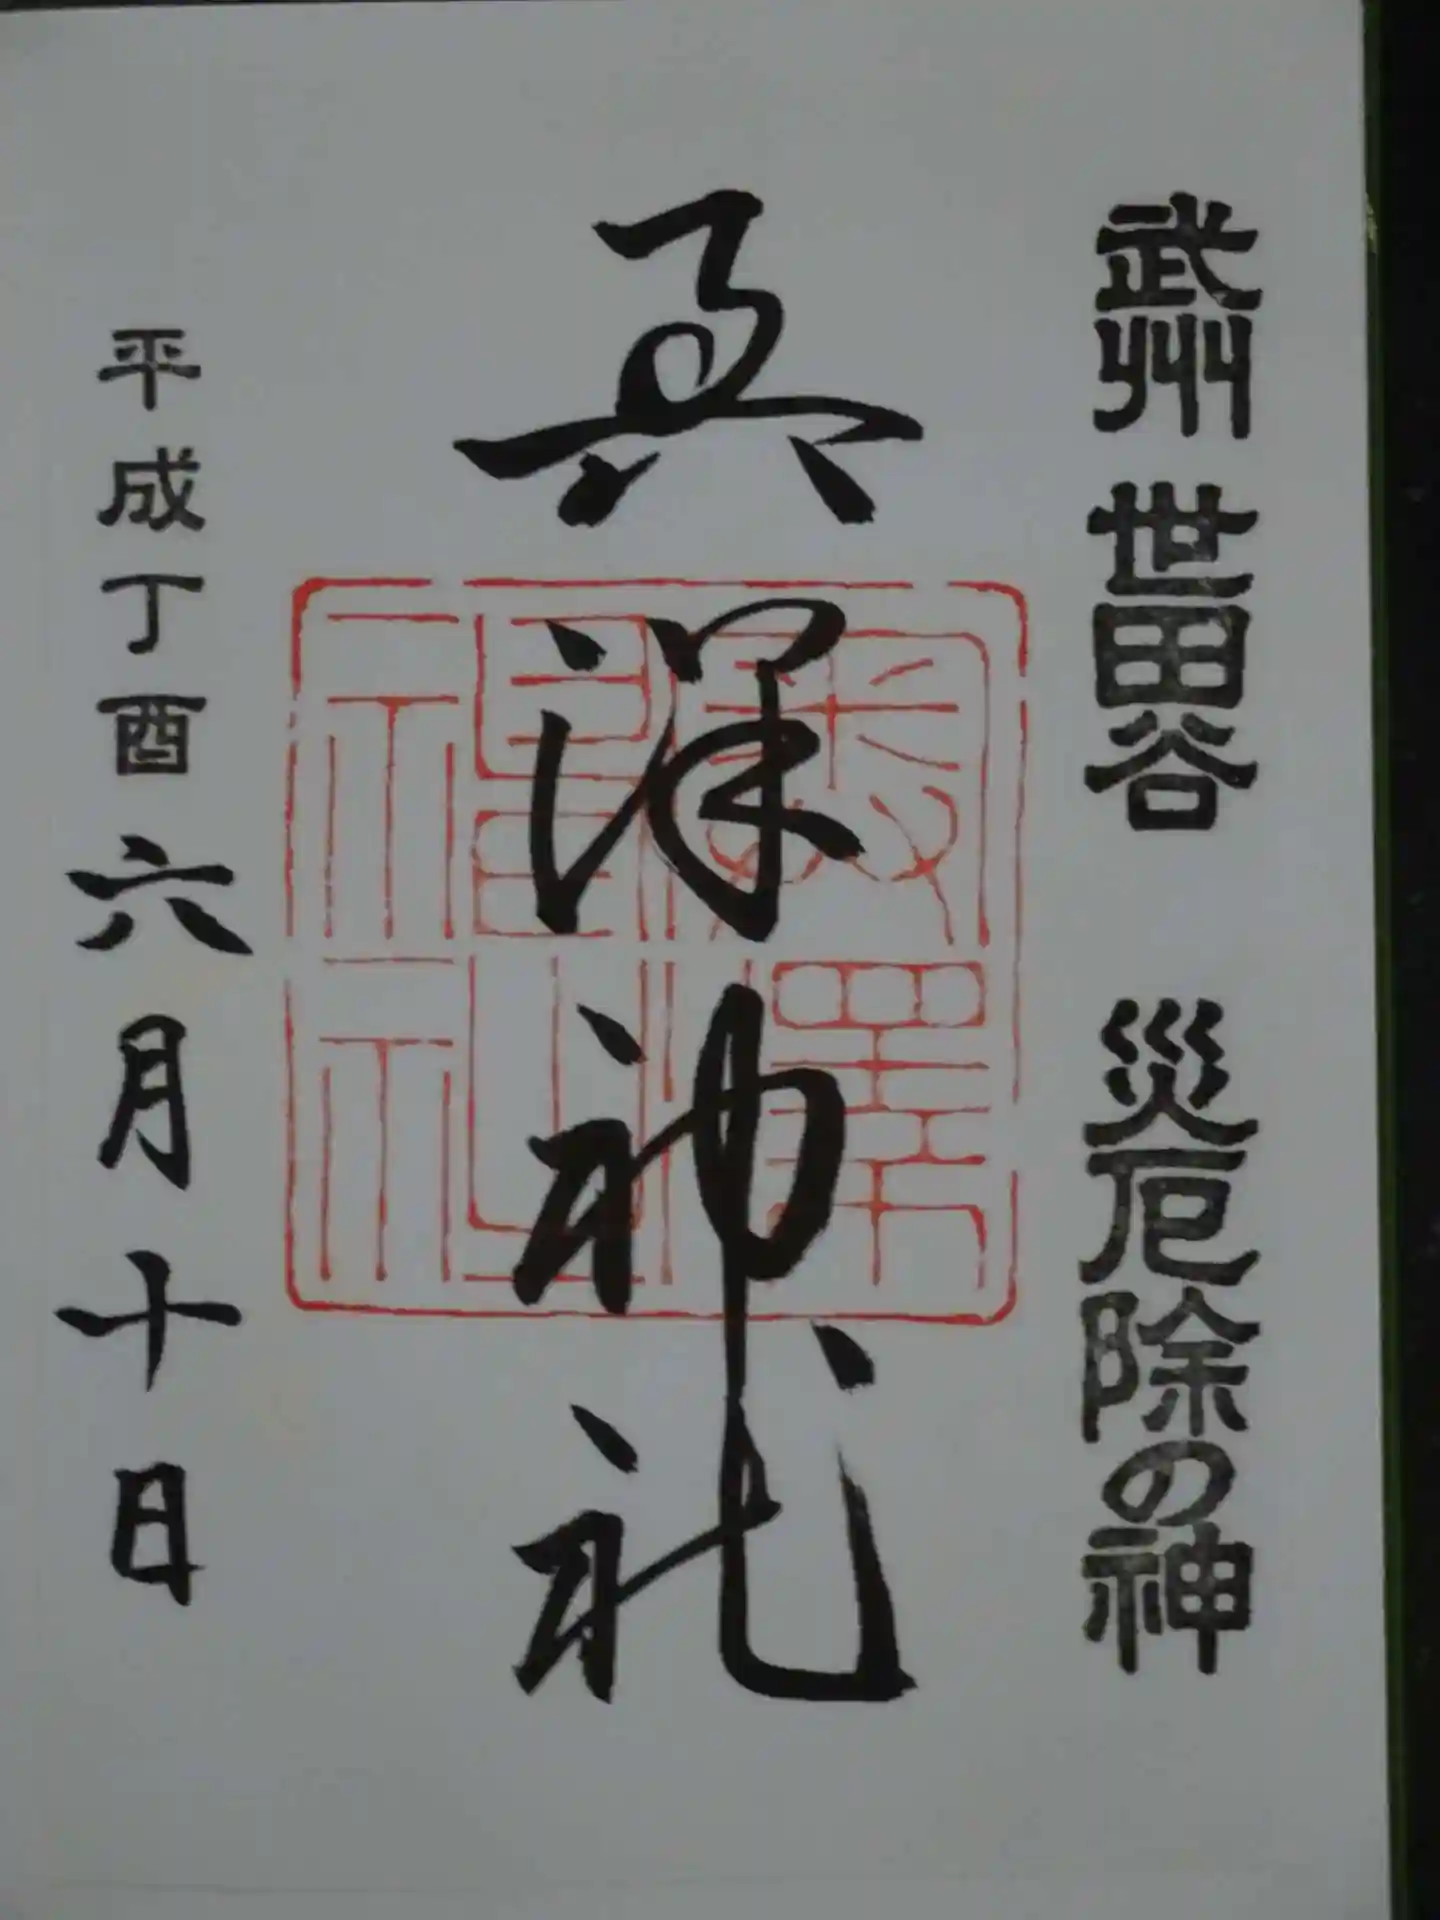 武州 世田谷 災厄除の神
奥澤神社
奥澤
神社
平成丁酉六月十日